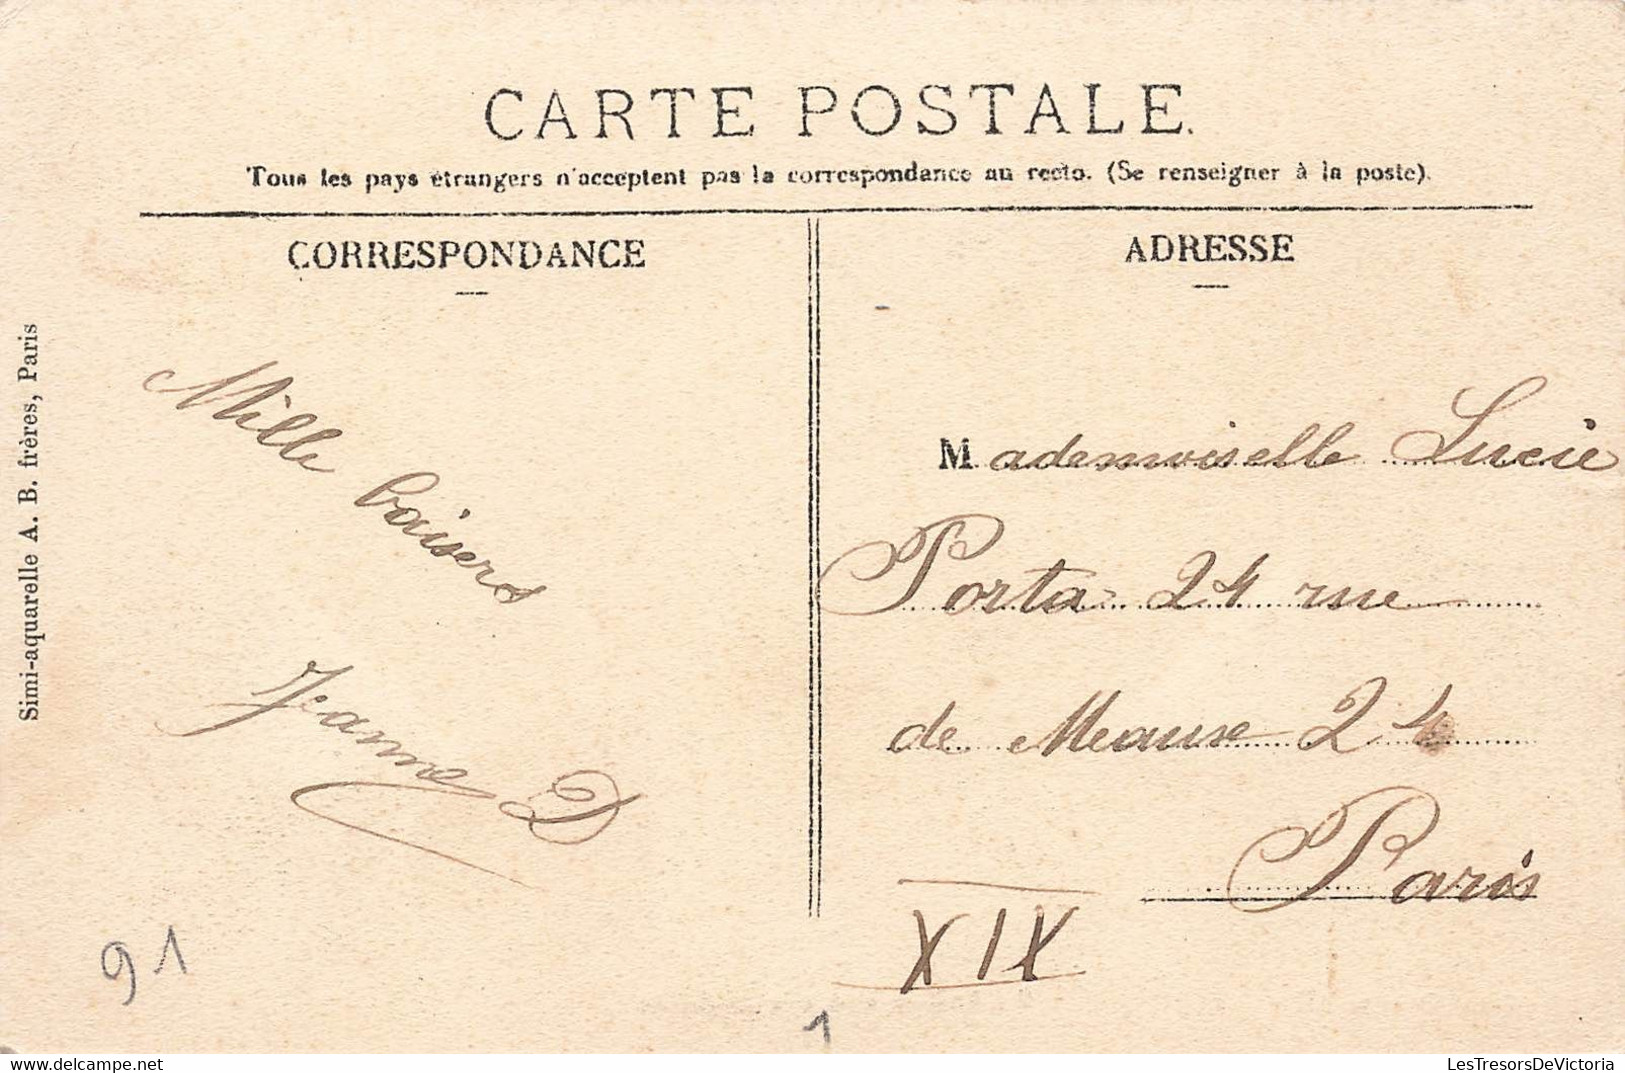 CARTE POSTALE.
Tous les pays étrangers n'acceptent pas la correspondance au recto. (Se renseigner à la poste).
CORRESPONDANCE
Mille baisers
Jeanne D
ADRESSE
Mademoiselle Lucie
Porta 24 rue
de Meause 24
Paris
XIX
Simi-aquarelle A. B. frères, Paris
91
1
LesTresorsDeVictoria